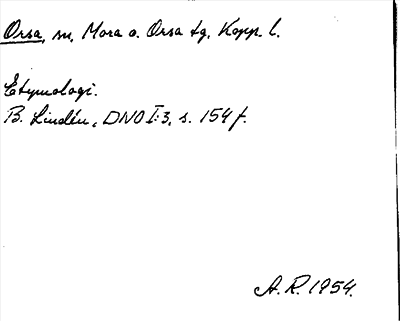 Orsa, sn, Mora o. Orsa tg, Kopp. l.
Etymologi.
B. Lindén, DNO I:3, s. 154 f.
A. R. 1954.